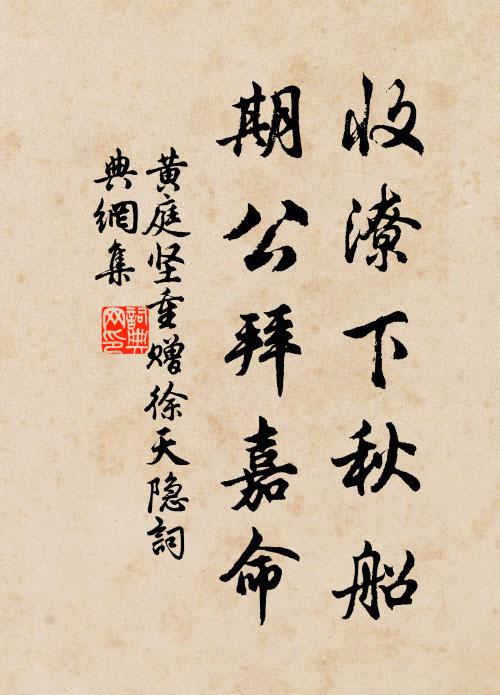 收潦下秋船
期公拜嘉命
黄庭坚重赠徐天隐詞
典網集
詞典
网印